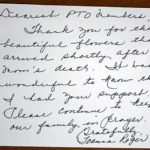 Dearest PTO Members,
Thank you for the
beautiful flowers th
arrived shortly after
Mom's death. It was
wonderful to know th
I had your support.
Please continue to keep
our family in prayer.
Gratefully,
Joanna